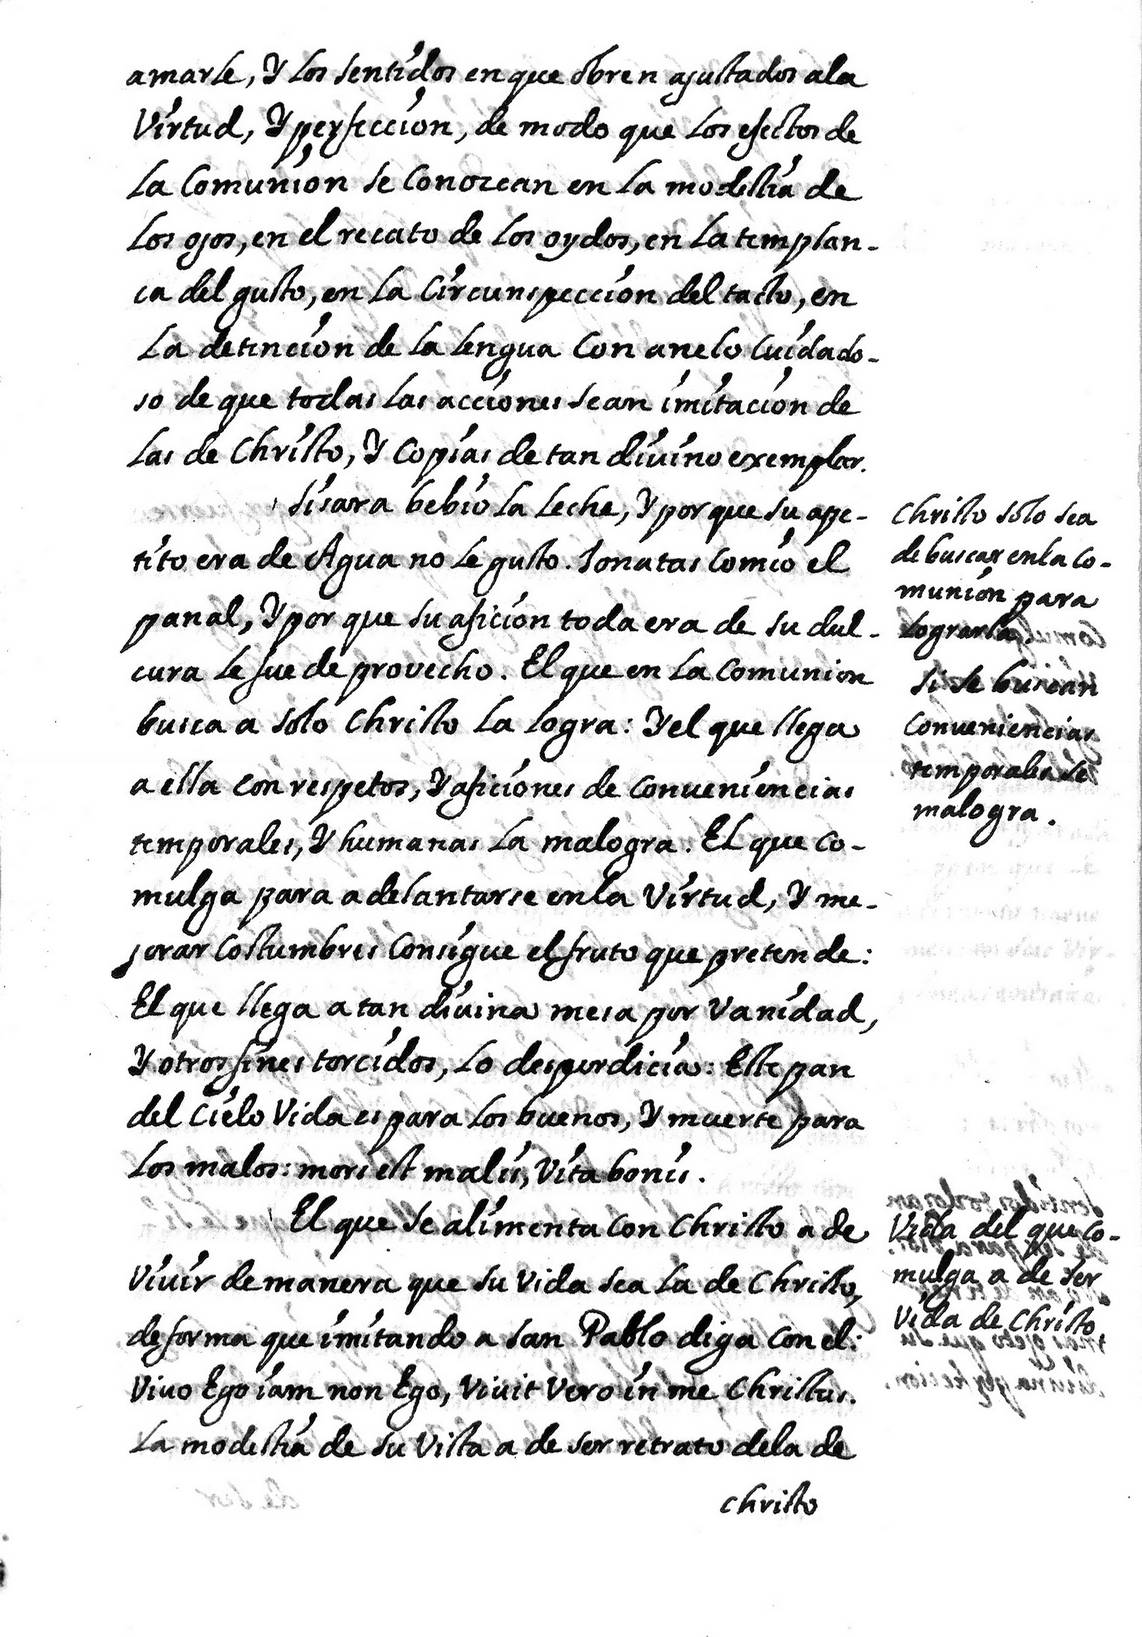 amarle, Y los sentidos en que obren ajustados ala
Virtud, Y perfeccion, de modo que los efectos de
la Comunion se Conozcan en la modestia de
los ojos, en el recato de los oydos, en la templan-
ca del gusto, en la Circunspeccion del tacto, en
la detencion de la lengua Con anelo Cuidado-
so de que todas las acciones sean imitacion de
las de Christo, Y Copias de tan divino exemplar.
Sisara bebio la leche, Y por que su ape-
tito era de Agua no le gusto. Jonatas Comio el
panal, Y por que su aficion toda era de su dul-
cura le fue de provecho. El que en la Comunion
busca a solo Christo la logra: Y el que llega
a ella Con respetos, Y aficiones de Conveniencias
temporales, Y humanas la malogra. El que Co-
mulga para adelantarse en la Virtud, Y me-
jorar Costumbres Consigue el fruto que pretende:
El que llega a tan divina mesa por Vanidad,
Y otros fines torcidos, lo desperdicia: Este pan
del Cielo Vida es para los buenos, Y muerte para
los malos: mors est malis, Vita bonis.
El que se alimenta Con Christo a de
Vivir de manera que su Vida sea la de Christo,
de forma que imitando a san Pablo diga Con el:
Vivo Ego iam non Ego, Vivit Vero in me Christus.
La modestia de su Vista a de ser retrato dela de
Christo
Christo solo sea
de buscar en la Co-
munion para
lograrla
Si se buscan
Conveniencias
temporales se
malogra.
Vida del que Co-
mulga a de ser
Vida de Christo